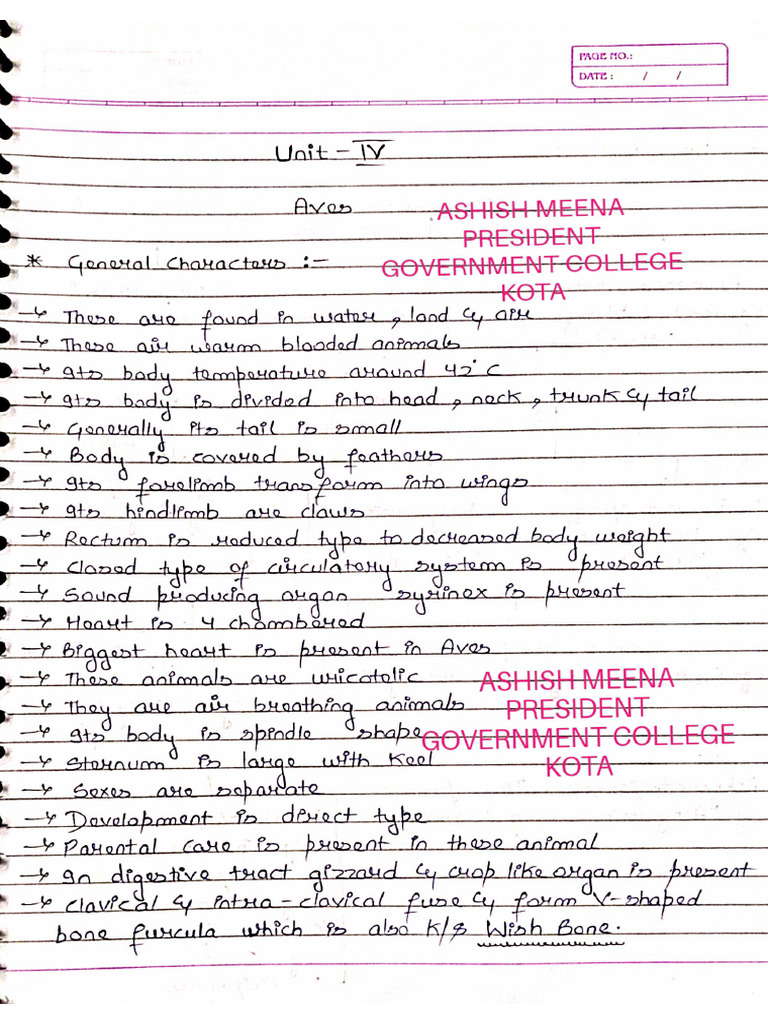 PAGE NO.:
DATE : / /
Unit - IV
Aves
ASHISH MEENA
PRESIDENT
GOVERNMENT COLLEGE
KOTA
* General Characters :-
→ These are found in water, land & air
→ These air warm blooded animals
→ Its body temperature around 42°C
→ Its body is divided into head, neck, trunk & tail
→ Generally its tail is small
→ Body is covered by feathers
→ Its forelimb transform into wings
→ Its hindlimb are claws
→ Rectum is reduced type to decreased body weight
→ Closed type of circulatory system is present
→ Sound producing organ syrinex is present
→ Heart is 4 chambered
→ Biggest heart is present in Aves
→ These animals are uricotelic
→ They are air breathing animals
→ Its body is spindle shape
→ Sternum is large with Keel
ASHISH MEENA
PRESIDENT
GOVERNMENT COLLEGE
KOTA
→ Sexes are separate
→ Development is direct type
→ Parental care is present in these animal
→ In digestive tract gizzard & crop like organ is present
→ Clavical & intra-clavical fuse & form V-shaped
bone furcula which is also K/s Wish Bone.